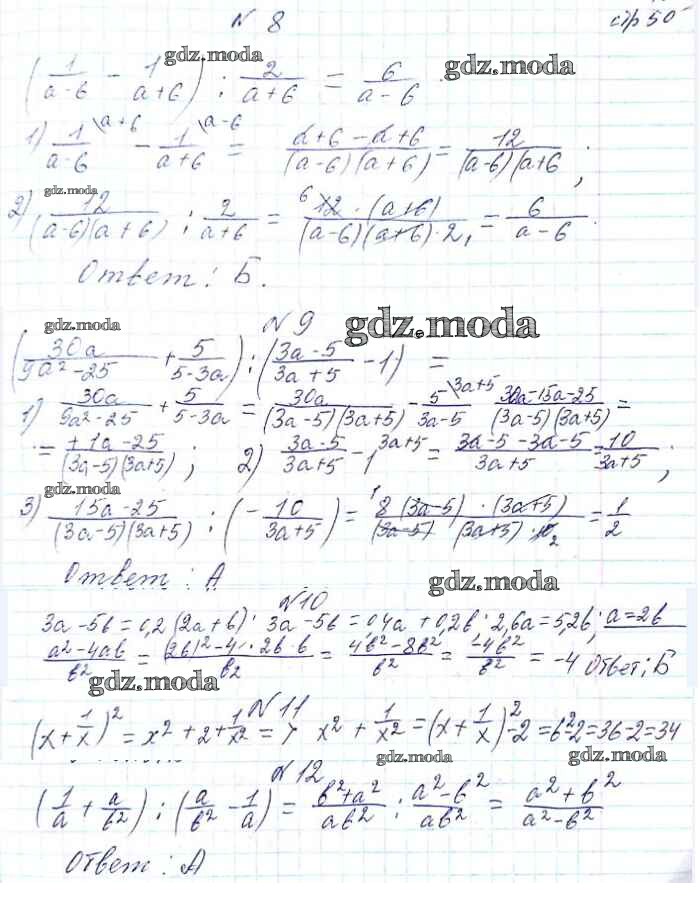 N 8 стр 50
(1/(a-6) - 1/(a+6)) : 2/(a+6) = 6/(a-6) gdz.moda
1) 1/(a-6) \a+6 - 1/(a+6) \a-6 = (a+6-a+6)/((a-6)(a+6)) = 12/((a-6)(a+6 ;
gdz.moda
2) 12/((a-6)(a+6)) : 2/(a+6) = 6 12·(a+6)/((a-6)(a+6)·2, = 6/(a-6)
Ответ: Б.
gdz.moda N 9 gdz.moda
(30a/(9a²-25) + 5/(5-3a)) : ((3a-5)/(3a+5) - 1) =
1) 30a/(9a²-25) + 5/(5-3a) = 30a/((3a-5)(3a+5)) - 5/(3a-5) \3a+5 (30a-15a-25)/((3a-5)(3a+5)) =
= (-25)/((3a-5)(3a+5)) ; 2) (3a-5)/(3a+5) - 1 \3a+5 = (3a-5-3a-5)/(3a+5) = 10/(3a+5) ;
gdz.moda
3) (15a-25)/((3a-5)(3a+5)) : (- 10/(3a+5)) = (3a-5)·(3a+5)/((3a-5)(3a+5)· = 1/2
Ответ: А gdz.moda
N10
3a-5b=0,2(2a+b); 3a-5b=0,4a+0,2b; 2,6a=5,2b; a=2b
(a²-4ab)/b² = ((2b)²-4·2b·b)/b² = (4b²-8b²)/b² = -4b²/b² = -4 Ответ: Б
gdz.moda
N 11
(x+1/x)² = x²+2+1/x² => x²+1/x² = (x+1/x)²-2=6²-2=36-2=34
gdz.moda gdz.moda
N 12
(1/a + a/b²) : (a/b² - 1/a) = (b²+a²)/ab² : (a²-b²)/ab² = (a²+b²)/(a²-b²)
Ответ: А